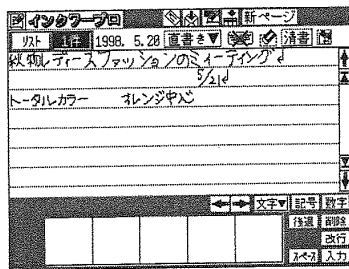 インクワープロ 新ページ
リスト 1件 1998. 5.20 直書き▼ 清書
秋物レディースファッションのミーティング
5/21
トータルカラー オレンジ中心
← → 文字▼ 記号 数字
後退 削除
改行
スペース 入力